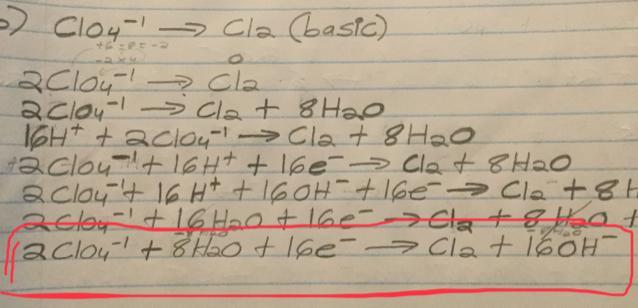 b) ClO4⁻¹ → Cl2 (basic)
2ClO4⁻¹ → Cl2
2ClO4⁻¹ → Cl2 + 8H2O
16H⁺ + 2ClO4⁻¹ → Cl2 + 8H2O
2ClO4⁻¹ + 16H⁺ + 16e⁻ → Cl2 + 8H2O
2ClO4⁻¹ + 16H⁺ + 16OH⁻ + 16e⁻ → Cl2 + 8H
2ClO4⁻¹ + 16H2O + 16e⁻ → Cl2 + 8H2O +
2ClO4⁻¹ + 8H2O + 16e⁻ → Cl2 + 16OH⁻